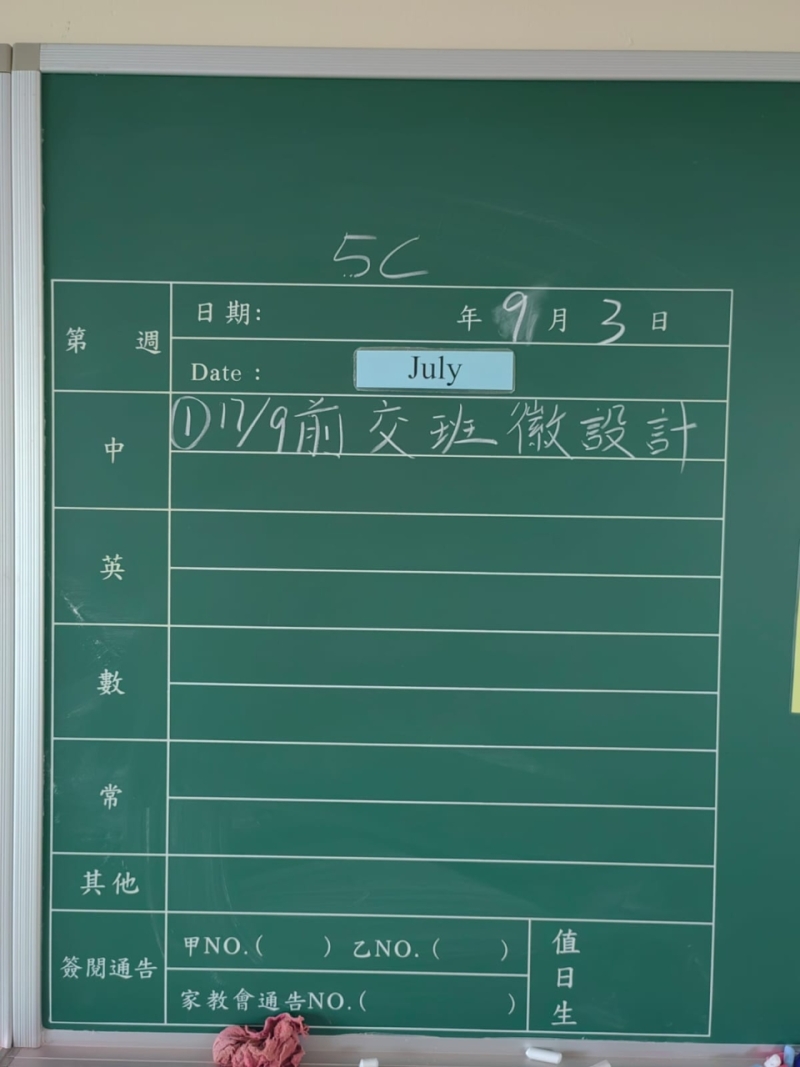 5C
第 週
日期: 年 9 月 3 日
Date : July
中 ①17/9前交班徽設計
英
數
常
其他
簽閱通告
甲NO.( ) 乙NO.( )
家教會通告NO.( )
值日生